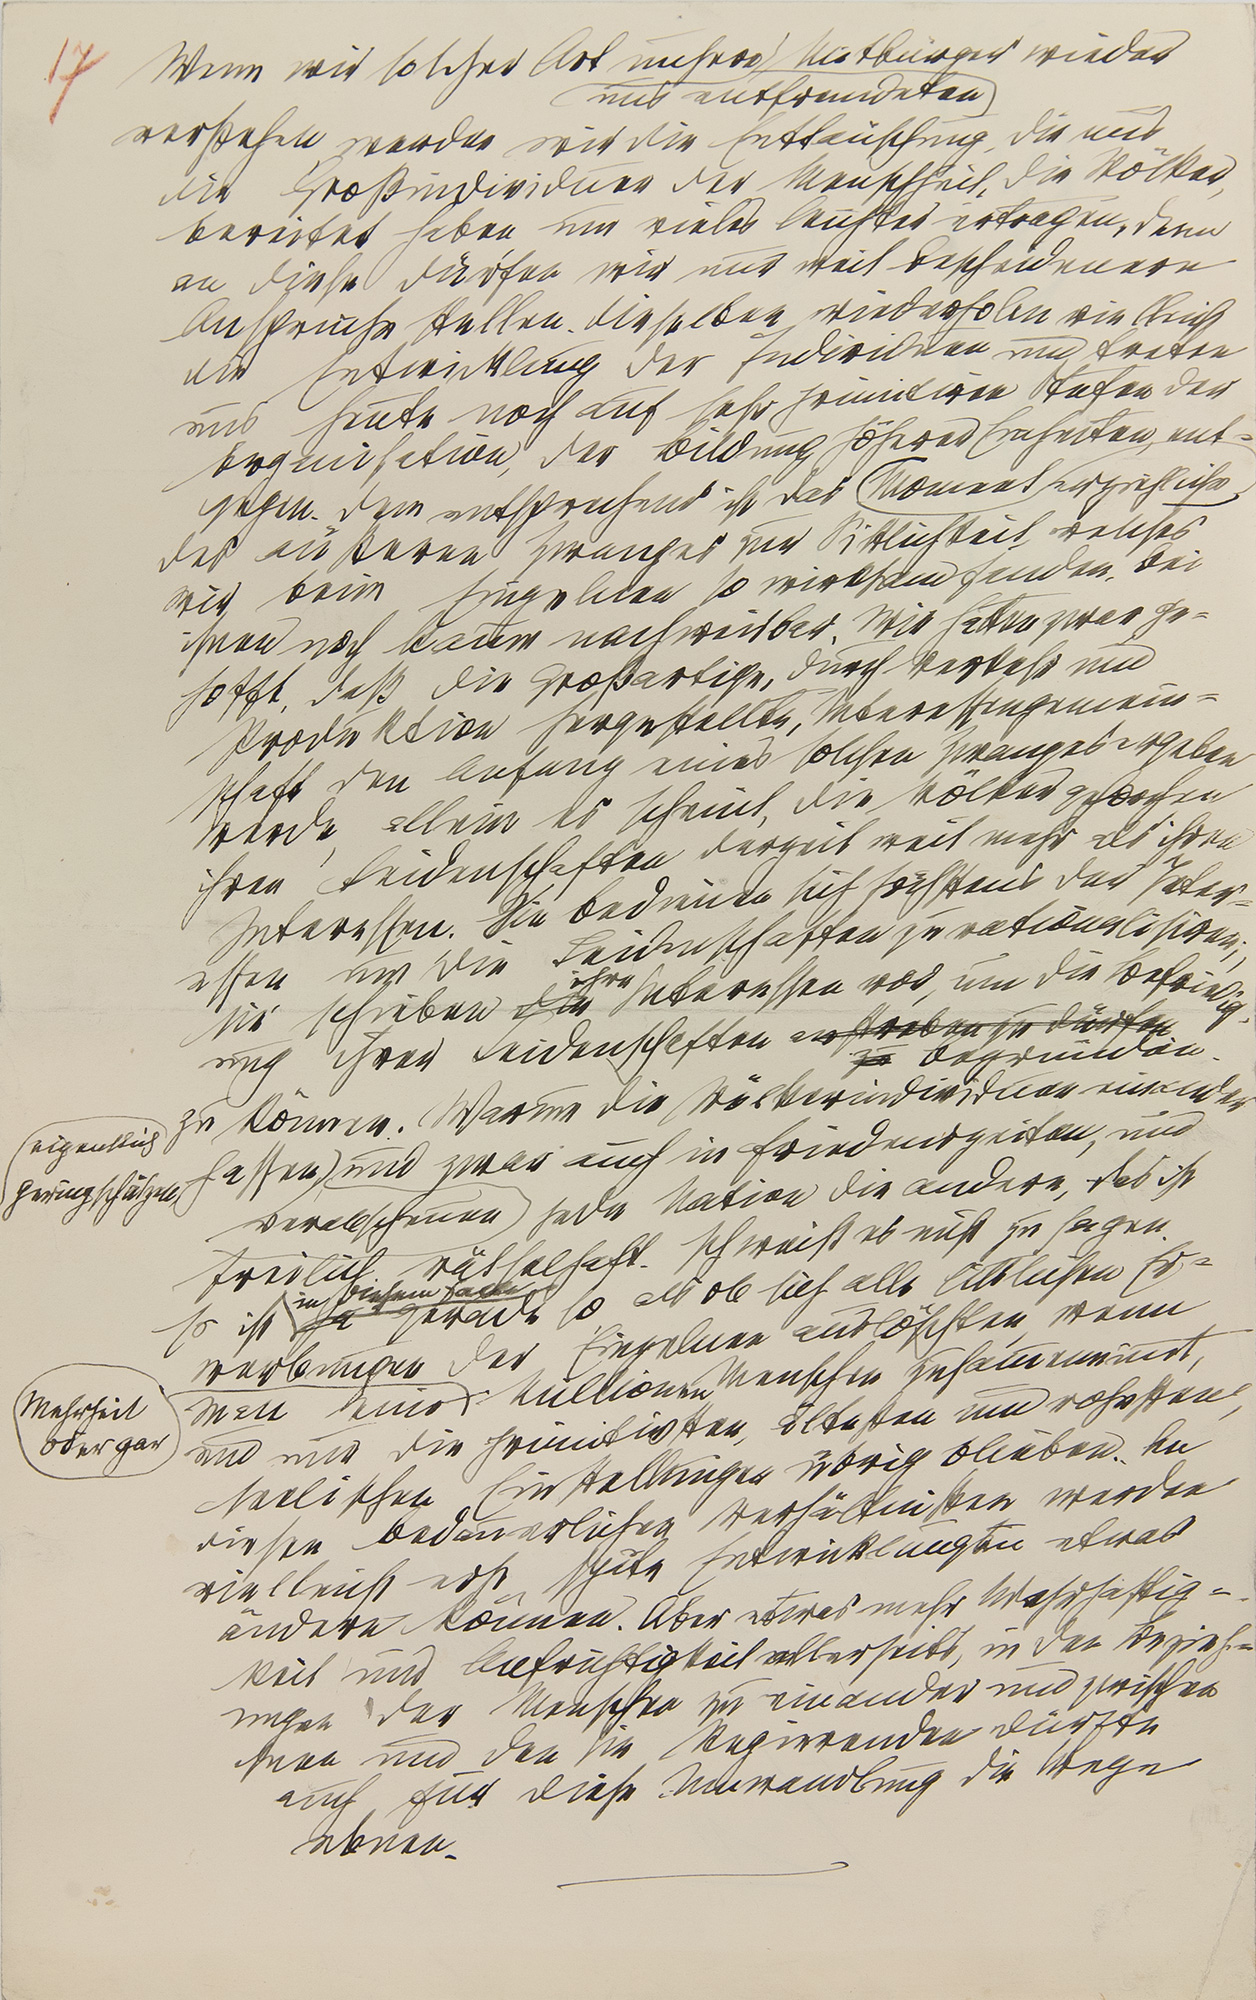 17
Wenn wir solcher Art unsere Mitbürger wieder
uns entfremdeten
verstehen werden wir die Enttäuschung, die uns
die Großindividuen der Menschheit, die Völker,
bereitet haben um vieles leichter ertragen, denn
an diese dürfen wir nur weit bescheidenere
Ansprüche stellen. Dieselben wiederholen vielleicht
die Entwicklung der Individuen und treten
uns heute noch auf sehr primitiven Stufen der
Organisation, der Bildung höherer Einheiten, ent-
gegen. Dem entsprechend ist das Moment erziehliche
des äußeren Zwanges zur Sittlichkeit, welches
wir beim Einzelnen so wirksam fanden, bei
ihnen noch kaum nachweisbar. Wir hatten zwar ge-
hofft, daß die großartige, durch Verkehr und
Produktion hergestellte, Interessengemein-
schaft den Anfang eines solchen Zwanges ergeben
werde, allein es scheint, die Völker gehorchen
ihren Leidenschaften derzeit weit mehr als ihren
Interessen. Sie bedienen sich höchstens der Inter-
essen um die Leidenschaften zu rationalisiren;
ihre
sie schieben die Interessen vor, um die Befriedig-
ung ihrer Leidenschaften anstreben zu dürfen
zu begründen
zu können. Warum die Völkerindividuen einander
eigentlich
geringschätzen,
hassen, und zwar auch in Friedenszeiten, und
verabscheuen jede Nation die andere, das ist
freilich rätselhaft. Ich weiß es nicht zu sagen.
in diesem Falle
Es ist ja gerade so als ob sich alle sittlichen Er-
werbungen der Einzelnen auslöschten, wenn
Mehrheit
oder gar
man eine Millionen Menschen zusammennimmt,
und nur die primitivsten, ältesten und rohesten,
seelischen Einstellungen übrig blieben. An
diesen bedauerlichen Verhältnissen werden
vielleicht erst späte Entwicklungen etwas
ändern können. Aber etwas mehr Wahrhaftig-
keit und Aufrichtigkeit allerseits, in den Bezieh-
ungen der Menschen zu einander und zwischen
ihnen und den sie Regierenden dürfte
auch für diese Umwandlung die Wege
ebnen.